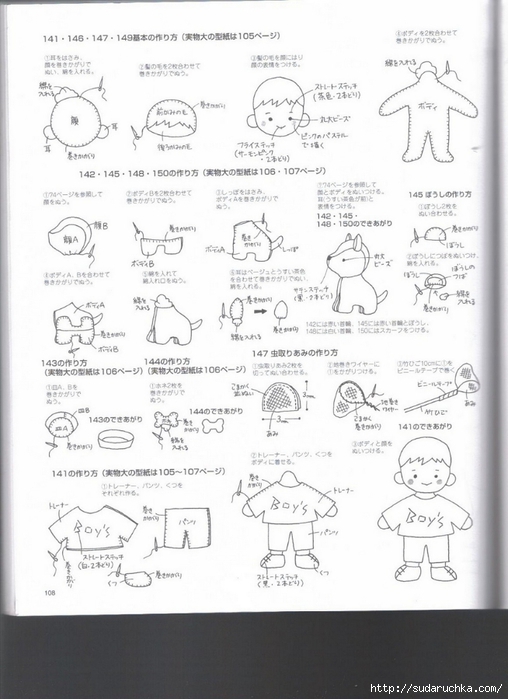 141・146・147・149基本の作り方（実物大の型紙は105ページ）
①耳をはさみ、
顔を巻きかがりで
ぬい、綿を入れる。
綿を入れる
顔
耳
耳
巻きかがり
②髪の毛を2枚合わせて
巻きかがりでぬう。
前がみの毛
後ろがみの毛
巻きかがり
③髪の毛を顔にはり
顔の表情をつける。
ストレートステッチ
（茶色・2本どり）
丸大ビーズ
ピンクのパステル
で描く
フライステッチ
（サーモンピンク
・2本どり）
④ボディを2枚合わせて
巻きかがりでぬう。
綿を入れる
ボディ
巻きかがり
142・145・148・150の作り方（実物大の型紙は106・107ページ）
①74ページを参照して
顔をぬう。
顔B
顔A
②ボディBを2枚合わせて
巻きかがりでぬう。
巻きかがり
ボディB
③しっぽをはさみ、
ボディAを巻きかがりで
ぬう。
巻き
かがり
ボディA
しっぽ
④ボディA、Bを合わせて
巻きかがりでぬう。
ボディA
巻きかがり
ボディB
⑤綿を入れて
綿入れ口をぬう。
綿を入れる
⑥耳はベージュとうすい茶色
を合わせて巻きかがりでぬい
綿を入れる。
巻き
かがり
綿を
入れる
⑦74ページを参照して
顔とボディをぬいつける。
耳（うすい茶色が前）と
表情をつける。
142・145・
148・150のできあがり
丸大
ビーズ
サテンステッチ
（黒・2本どり）
142には赤い首輪、145には赤い首輪とぼうし、
148には白い首輪、150にはスカーフをつける。
145 ぼうしの作り方
①ぼうし2枚を
ぬい合わせる。
ぼうし
②ぼうしにつばをぬいつけ、
綿を入れる。
ぼうし
ぼうしの
つば
巻きかがり
綿を
入れる
143の作り方
（実物大の型紙は106ページ）
①皿A、Bを
巻きかがりで
ぬう。
皿B
皿A
巻きかがり
143のできあがり
144の作り方
（実物大の型紙は106ページ）
①本体2枚を
巻きかがりで
ぬう。
巻きかがり
綿を
入れる
144のできあがり
147 虫取りあみの作り方
①虫取りあみ2枚を
切ってぬい合わせる。
こまかく
並ぬい
3cm
3cm
あみ
②地巻きワイヤーに
①をかがりつける。
地巻き
ワイヤー
こまかく
巻きかがり
③竹ひご10cmに②を
ビニールテープで巻く。
ビニールテープ
竹ひご
あみ
141の作り方（実物大の型紙は105〜107ページ）
①トレーナー、パンツ、くつを
それぞれ作る。
トレーナー
BOY'S
ストレートステッチ
（白・2本どり）
巻きかがり
巻き
かがり
パンツ
くつ
巻きかがり
②トレーナー、パンツ、くつを
ボディに着せる。
巻きかがり
トレーナー
BOY'S
パンツ
ストレートステッチ
（黒・2本どり）
くつ
141のできあがり
③ボディと顔を
ぬいつける。
BOY'S
108
http://sudaruchka.com/